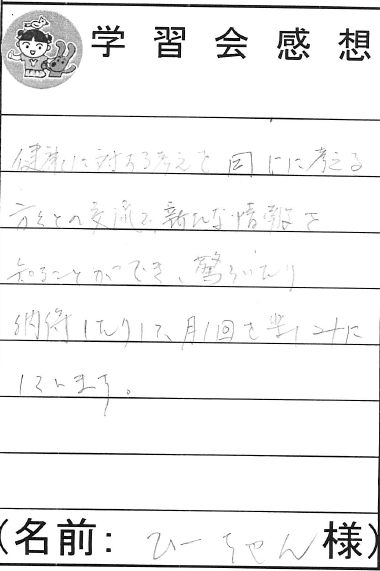 学習会感想
健康に対する考えを同じに考える
方々との交流で、新たな情報を
知ることができ、驚いたり
納得したりして、月1回を楽しみに
しています。
(名前: ひーちゃん 様)